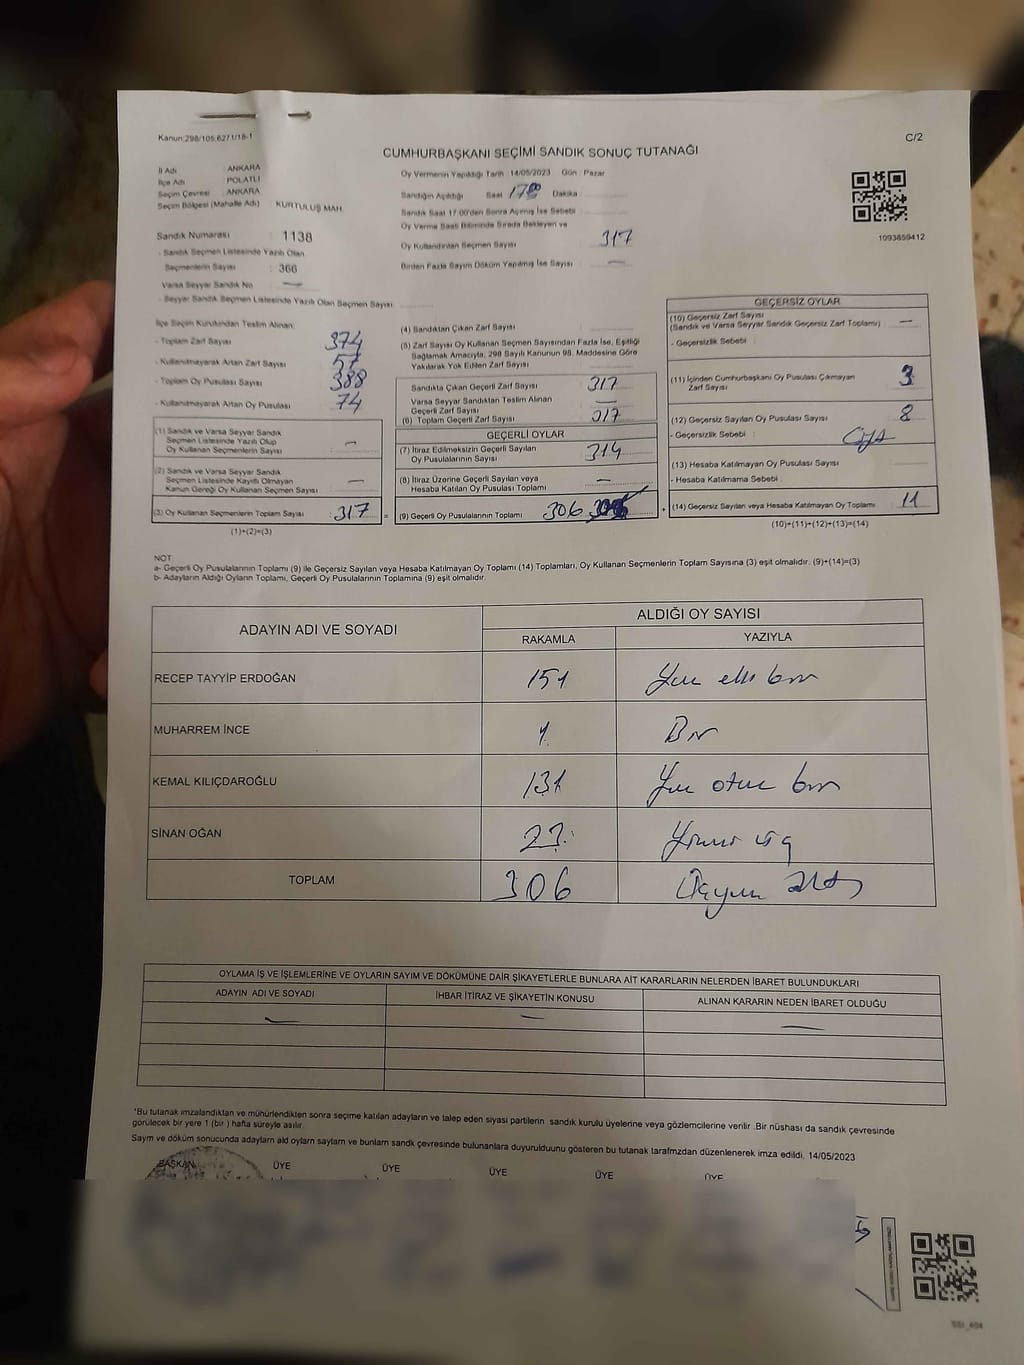 Kanun:298/105;6271/18-1
C/2
CUMHURBAŞKANI SEÇİMİ SANDIK SONUÇ TUTANAĞI
İl Adı : ANKARA
İlçe Adı : POLATLI
Seçim Çevresi : ANKARA
Seçim Bölgesi (Mahalle Adı) KURTULUŞ MAH.
Sandık Numarası : 1138
- Sandık Seçmen Listesinde Yazılı Olan
Seçmenlerin Sayısı : 366
Varsa Seyyar Sandık No —
- Seyyar Sandık Seçmen Listesinde Yazılı Olan Seçmen Sayısı
Oy Vermenin Yapıldığı Tarih :14/05/2023 Gün : Pazar
Sandığın Açıldığı Saat 17:00 Dakika :
Sandık Saat 17:00'den Sonra Açılmış İse Sebebi :
Oy Verme Saati Bitiminde Sırada Bekleyen ve
Oy Kullandırılan Seçmen Sayısı 317
Birden Fazla Sayım Döküm Yapılmış İse Sayısı : —
1093859412
İlçe Seçim Kurulundan Teslim Alınan:
- Toplam Zarf Sayısı 374
- Kullanılmayarak Artan Zarf Sayısı 57
- Toplam Oy Pusulası Sayısı 388
- Kullanılmayarak Artan Oy Pusulası 74
(1) Sandık ve Varsa Seyyar Sandık
Seçmen Listesinde Yazılı Olup
Oy Kullanan Seçmenlerin Sayısı —
(2) Sandık ve Varsa Seyyar Sandık
Seçmen Listesinde Kayıtlı Olmayan
Kanun Gereği Oy Kullanan Seçmen Sayısı —
(3) Oy Kullanan Seçmenlerin Toplam Sayısı 317 =
(1)+(2)=(3)
(4) Sandıktan Çıkan Zarf Sayısı
(5) Zarf Sayısı Oy Kullanan Seçmen Sayısından Fazla İse, Eşitliği
Sağlamak Amacıyla, 298 Sayılı Kanunun 98. Maddesine Göre
Yakılarak Yok Edilen Zarf Sayısı
Sandıkta Çıkan Geçerli Zarf Sayısı 317
Varsa Seyyar Sandıktan Teslim Alınan
Geçerli Zarf Sayısı —
(6) Toplam Geçerli Zarf Sayısı 317
GEÇERLİ OYLAR
(7) İtiraz Edilmeksizin Geçerli Sayılan
Oy Pusulalarının Sayısı 314
(8) İtiraz Üzerine Geçerli Sayılan veya
Hesaba Katılan Oy Pusulası Toplamı —
(9) Geçerli Oy Pusulalarının Toplamı 306
GEÇERSİZ OYLAR
(10) Geçersiz Zarf Sayısı
(Sandık ve Varsa Seyyar Sandık Geçersiz Zarf Toplamı) : —
- Geçersizlik Sebebi :
(11) İçinden Cumhurbaşkanı Oy Pusulası Çıkmayan
Zarf Sayısı 3
(12) Geçersiz Sayılan Oy Pusulası Sayısı 8
- Geçersizlik Sebebi :
(13) Hesaba Katılmayan Oy Pusulası Sayısı
- Hesaba Katılmama Sebebi :
+ (14) Geçersiz Sayılan veya Hesaba Katılmayan Oy Toplamı 11
(10)+(11)+(12)+(13)=(14)
NOT:
a- Geçerli Oy Pusulalarının Toplamı (9) ile Geçersiz Sayılan veya Hesaba Katılmayan Oy Toplamı (14) Toplamları, Oy Kullanan Seçmenlerin Toplam Sayısına (3) eşit olmalıdır. (9)+(14)=(3)
b- Adayların Aldığı Oyların Toplamı, Geçerli Oy Pusulalarının Toplamına (9) eşit olmalıdır.
ADAYIN ADI VE SOYADI
ALDIĞI OY SAYISI
RAKAMLA YAZIYLA
RECEP TAYYİP ERDOĞAN 151 Yüz elli bir
MUHARREM İNCE 1 Bir
KEMAL KILIÇDAROĞLU 131 Yüz otuz bir
SİNAN OĞAN 23 Yirmi üç
TOPLAM 306 Üçyüz Altı
OYLAMA İŞ VE İŞLEMLERİNE VE OYLARIN SAYIM VE DÖKÜMÜNE DAİR ŞİKAYETLERLE BUNLARA AİT KARARLARIN NELERDEN İBARET BULUNDUKLARI
ADAYIN ADI VE SOYADI İHBAR İTİRAZ VE ŞİKAYETİN KONUSU ALINAN KARARIN NEDEN İBARET OLDUĞU
— — —
*Bu tutanak imzalandıktan ve mühürlendikten sonra seçime katılan adayların ve talep eden siyasi partilerin sandık kurulu üyelerine veya gözlemcilerine verilir .Bir nüshası da sandık çevresinde
görülecek bir yere 1 (bir ) hafta süreyle asılır.
Sayım ve döküm sonucunda adayların ald oyların sayları ve bunların sandk çevresinde bulunanlara duyurulduunu gösteren bu tutanak tarafmzdan düzenlenerek imza edildi, 14/05/2023
BAŞKAN ÜYE ÜYE ÜYE ÜYE ÜYE